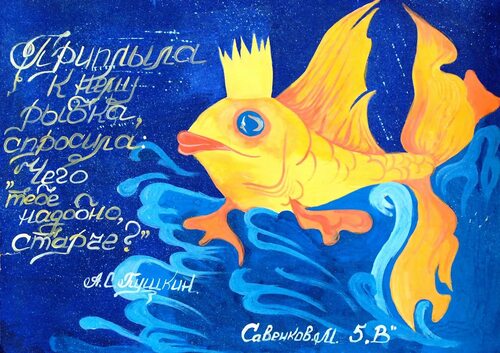 Приплыла
к нему
рыбка,
спросила:
"Чего
тебе
надобно,
старче?"
А.С Пушкин.
Савенков.М. 5„В"